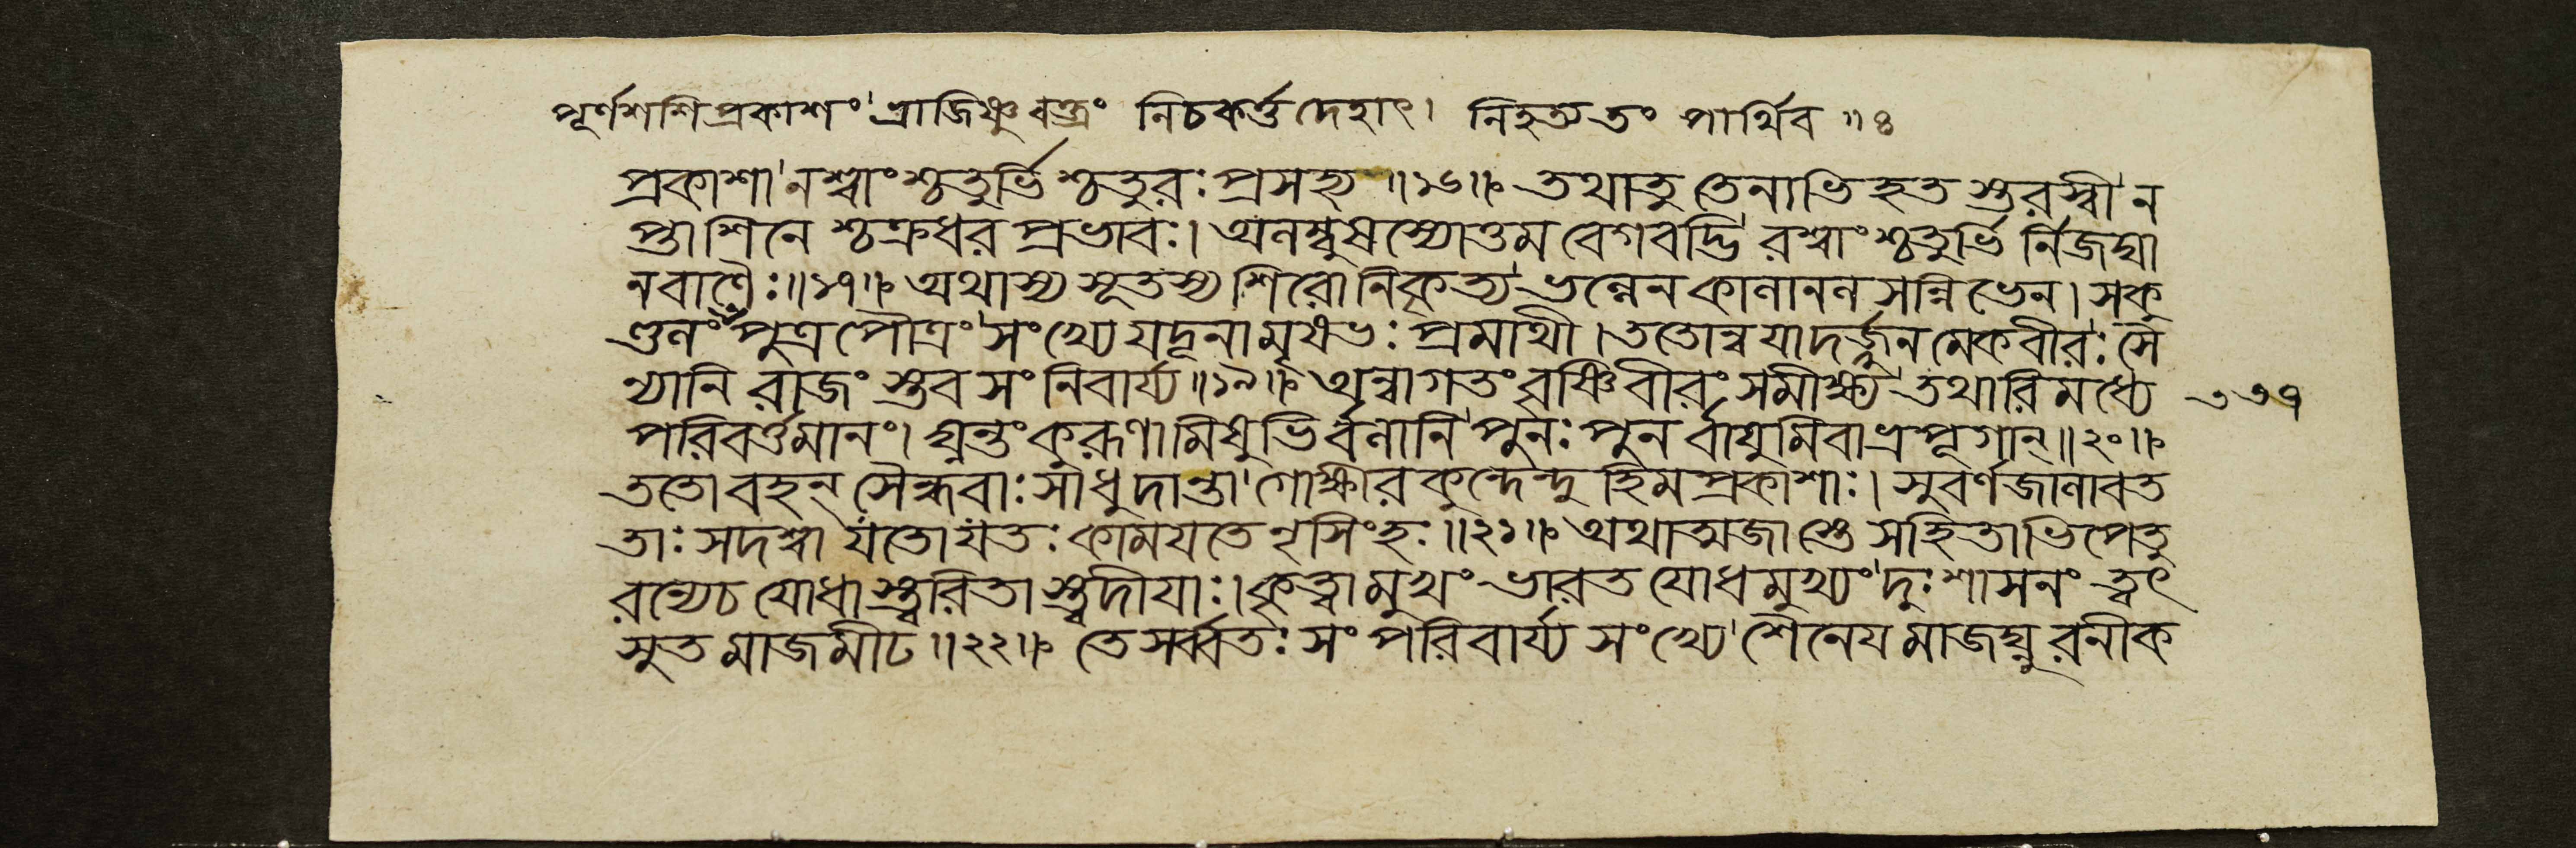 পূর্ণশশিপ্রকাশং ভ্রাজিষ্ণুবক্ত্রং নিচকর্ত্তদেহাৎ। নিহত্যতং পার্থিব ॥ ৪
প্রকাশানশ্বাংশ্চতুর্ভিশ্চতুরঃ প্রসহ্য ॥১৬॥ তথাতু তেনাভিহতস্তরস্বী ন
প্তাশিনেশ্চক্রধরপ্রভাবঃ। অলম্বুষস্যোত্তমবেগবদ্ভিরশ্বাংশ্চতুর্ভির্নিজঘা
নবাণৈঃ॥১৭॥ অথাস্য সূতস্য শিরোনিকৃত্য ভল্লেন কালানলসন্নিভেন। সকু
ণ্ডলং পুত্রপৌত্রং সংখ্যে যদূনামৃষভঃ প্রমাথী। ততোন্বযাদর্জ্জুনমেকবীরঃ সৈ
ন্যানি রাজংস্তব সংনিবার্য্য॥১৯॥ অন্বাগতং বৃষ্ণিবীরং সমীক্ষ্য তথারিমধ্যে ৩৩৭
পরিবর্ত্তমানং। ঘ্নন্তং কুরূণামিষুভির্বলানি পুনঃ পুনর্বাযুমিবাভ্রপূগান্॥২০॥
ততোবহন্ সৈন্ধবাঃ সাধুদান্তা গোক্ষীরকুন্দেন্দুহিমপ্রকাশাঃ। সুবর্ণজালাবত
তাঃ সদশ্বা যতোযতঃ কামযতে নৃসিংহঃ॥২১॥ অথাত্মজাস্তে সহিতাভিপেতু
রন্যেচ যোধাস্ত্বরিতাস্ত্বদীযাঃ। কৃত্বামুখং ভারত যোধমুখ্যং দুঃশাসনং ত্বৎ
সুতমাজমীঢ॥২২॥ তে সর্ব্বতঃ সংপরিবার্য্য সংখ্যে শৈনেযমাজঘ্নুরনীক